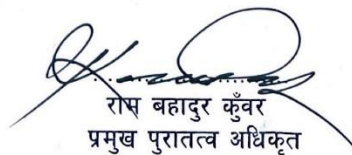 राम बहादुर कुँवर
प्रमुख पुरातत्व अधिकृत